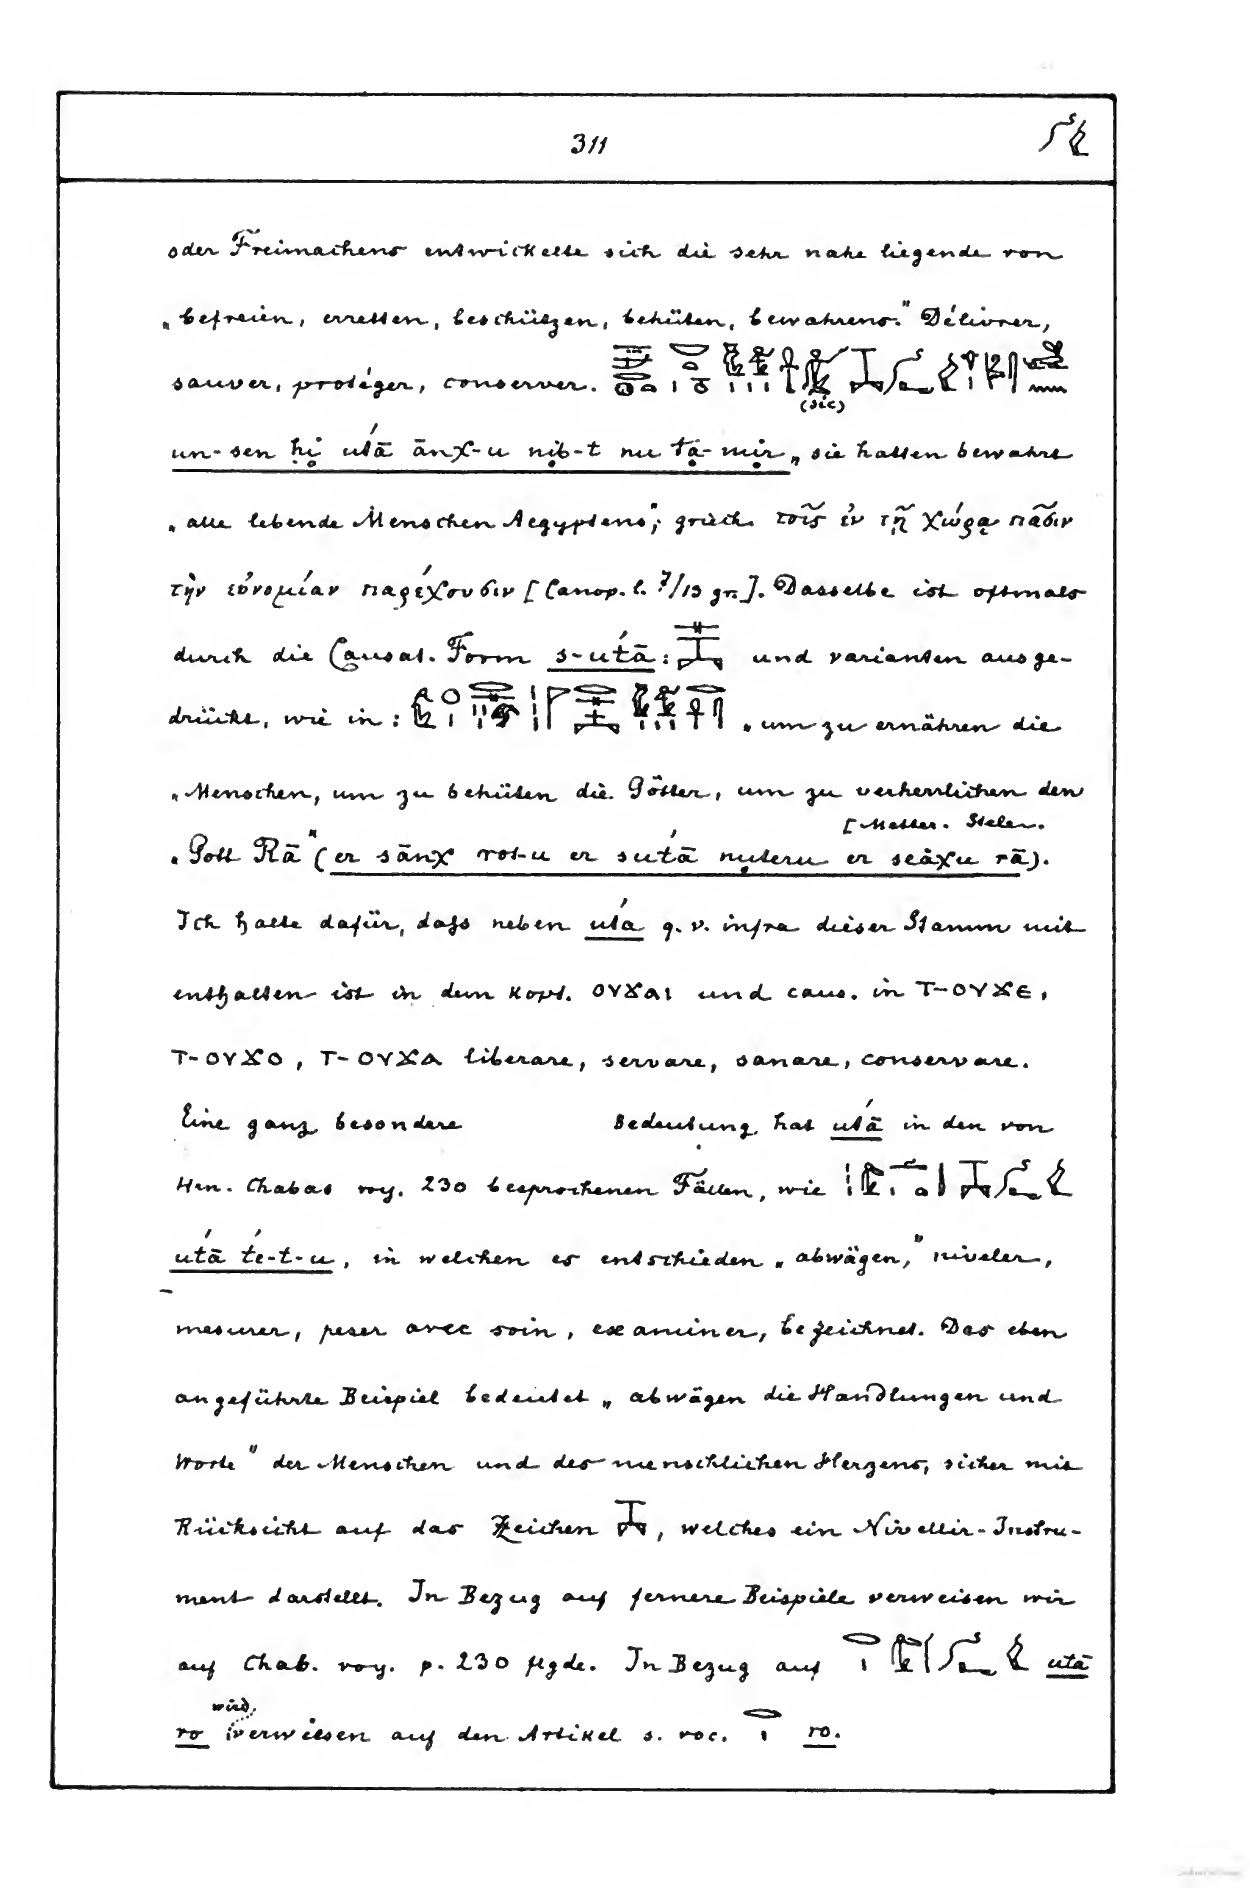 311
oder Freimachens entwickelte sich die sehr nahe liegende von
„befreien, erretten, beschützen, behüten, bewahrens." Délivrer,
sauver, protéger, conserver.
(sic)
un-sen ḥi utā ānχ-u nib-t nu ta-mir „sie hatten bewahrt
„alle lebende Menschen Aegyptens", griech. τοῖς ἐν τῇ χώρᾳ πᾶσιν
τὴν εὐνομίαν παρέχουσιν [Canop. l. 7/13 gr.]. Dasselbe ist oftmals
durch die Causat. Form s-utā: und varianten ausge-
drückt, wie in: „um zu ernähren die
„Menschen, um zu behüten die Götter, um zu verherrlichen den
[Metter. Stele.
„Gott Rā" (er sānχ rot-u er sutā nuteru er seāχu rā).
Ich halte dafür, dass neben uťa q. v. infra dieser Stamm mit
enthalten ist in dem kopt. ⲟⲩϫⲁⲓ und caus. in ⲧ-ⲟⲩϫⲉ,
ⲧ-ⲟⲩϫⲟ, ⲧ-ⲟⲩϫⲁ liberare, servare, sanare, conservare.
Eine ganz besondere Bedeutung hat uťā in den von
Hrn. Chabas voy. 230 besprochenen Fällen, wie
uťā ťe-t-u, in welchen es entschieden „abwägen," niveler,
mesurer, peser avec soin, examiner, bezeichnet. Das eben
angeführte Beispiel bedeutet „abwägen die Handlungen und
Worte" der Menschen und des menschlichen Herzens, sicher mit
Rücksicht auf das Zeichen , welches ein Nivellir-Instru-
ment darstellt. In Bezug auf fernere Beispiele verweisen wir
auf Chab. voy. p. 230 flgde. In Bezug auf utā
wird
ro verwiesen auf den Artikel s. voc. ro.